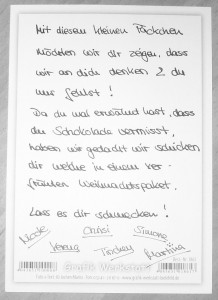 Mit diesem kleinen Päckchen
möchten wir dir zeigen, dass
wir an dich denken & du
uns fehlst!
Da du mal erwähnt hast, dass
du Schokolade vermisst,
haben wir gedacht wir schicken
dir welche in einem ver-
frühten Weihnachtspaket.
Lass es dir schmecken!
Nicole Chrissi Simone
Verena Martina
Grafik Werkstatt